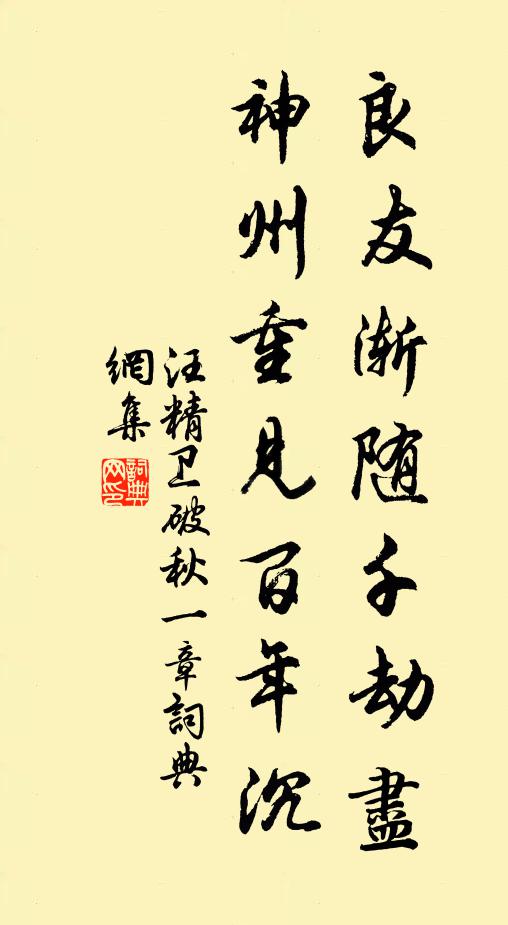 良友渐随千劫盡
神州重見百年沉
汪精卫破秋一章詞典
網集
詞典
网印